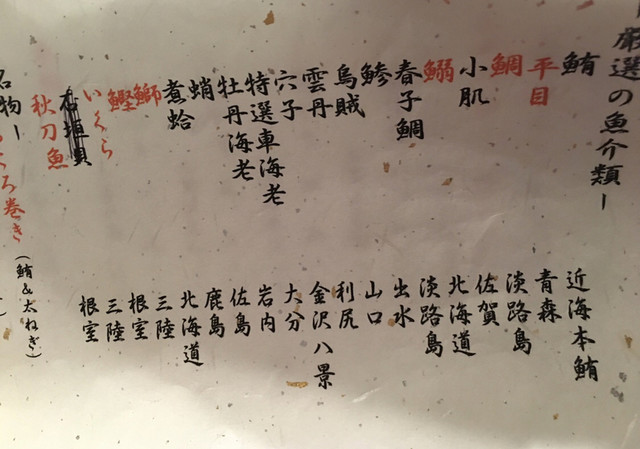 厳選の魚介類ー
鮪 近海本鮪
平目 青森
鯛 淡路島
小肌 佐賀
鰯 北海道
春子鯛 淡路島
鯵 出水
烏賊 山口
雲丹 利尻
穴子 金沢八景
特選車海老 大分
牡丹海老 岩内
蛸 佐島
煮蛤 鹿島
鰤 北海道
鰹 三陸
いくら 根室
石垣貝 三陸
秋刀魚 根室
名物ー
ろ巻き (鮪&太ねぎ)